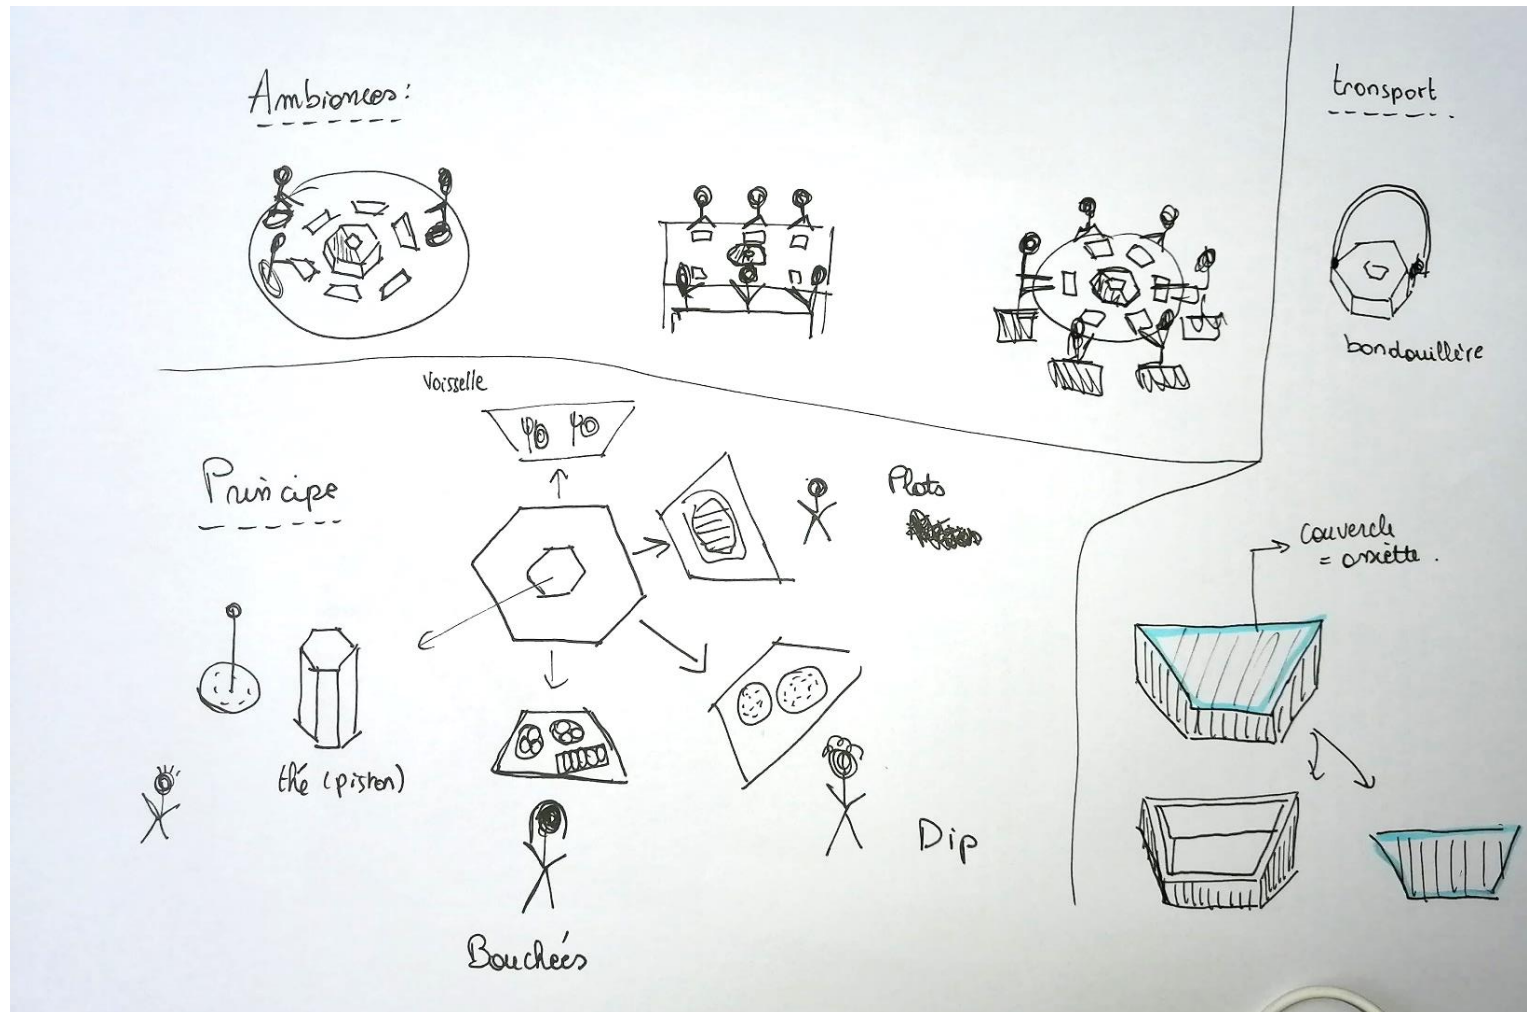 Ambiances:
transport
bandouillère
Vaisselle
Principe
Plats
couvercle
= assiette.
thé (piston)
Dip
Bouchées